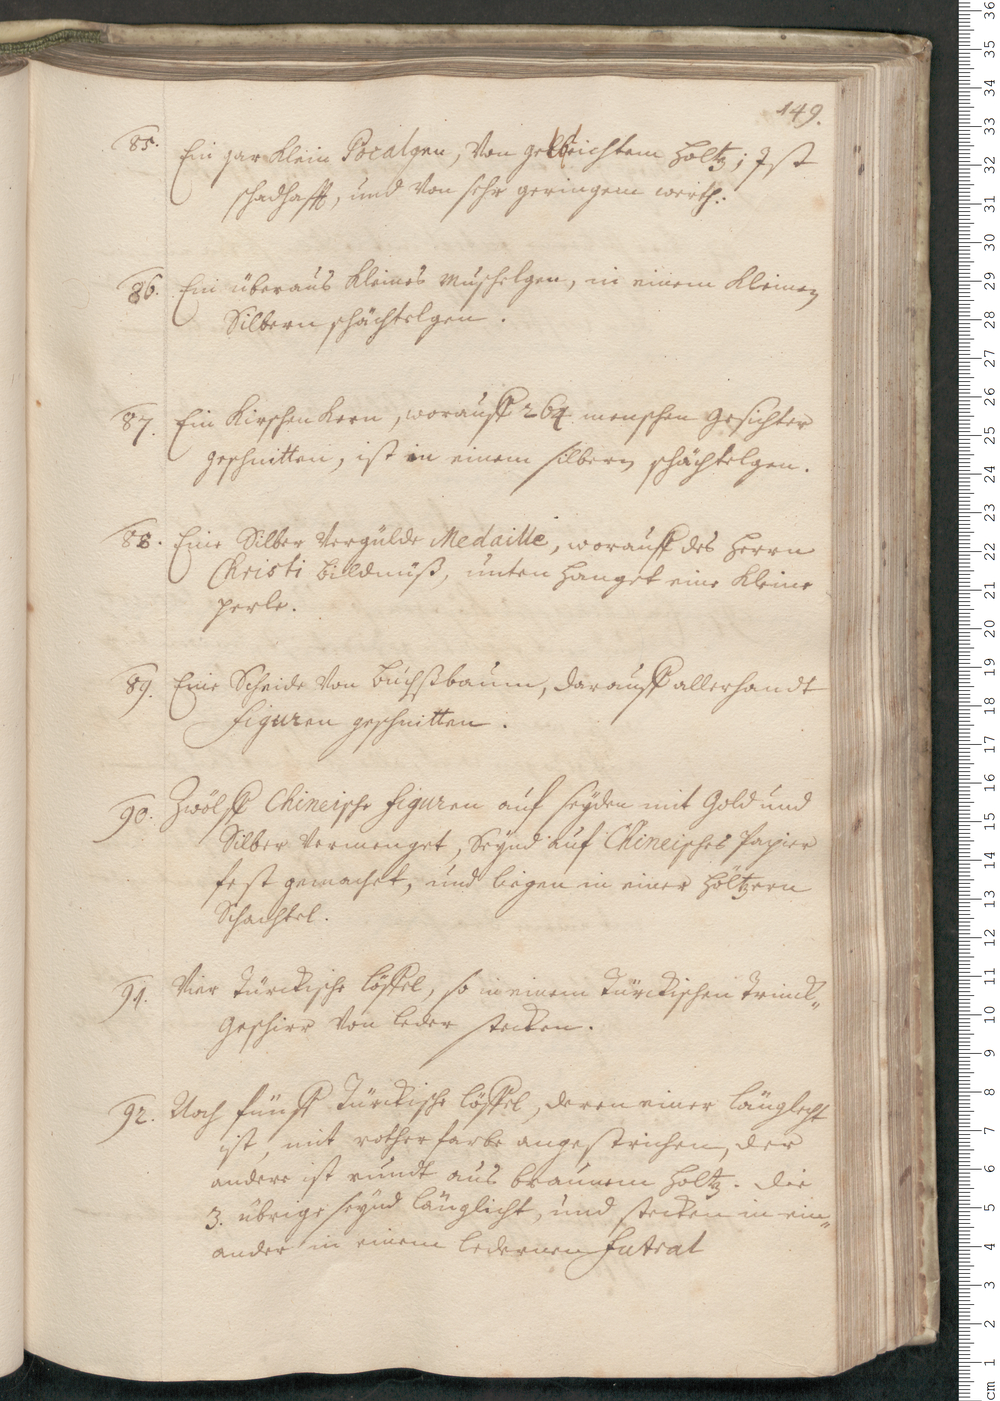 149.
85. Ein gar klein Pocalgen, von gebeichtem Holtz; Ist
schadhafft, und von sehr geringem werth.
86. Ein überaus kleines muschelgen, in einem kleinen
Silbern schächtelgen.
87. Ein Kirschen Kern, worauff 264 menschen gesichter
geschnitten, ist in einem silbern schächtelgen.
88. Eine Silber vergülde Medaille, worauff des Herrn
Christi bildnüß, unten hanget eine kleine
perle.
89. Eine Scheide von buchßbaum, darauff allerhandt
figuren geschnitten.
90. Zwölff Chineische figuren auf seyden mit Gold und
Silber vermenget, Seynd auf Chineisches Papier
fest gemachet, und liegen in einer höltzern
Schachtel.
91. Vier Türckische löffel, so in einem Türckischen Trinck„
geschirr von leder stecken.
92. Noch fünff Türckische löffel, deren einer länglecht
ist, mit rother farbe angestrichen, der
andere ist rundt aus braunem Holtz. die
3. übrige seynd länglicht, und stecken in ein„
ander in einem ledernen Futral
cm 1 2 3 4 5 6 7 8 9 10 11 12 13 14 15 16 17 18 19 20 21 22 23 24 25 26 27 28 29 30 31 32 33 34 35 36